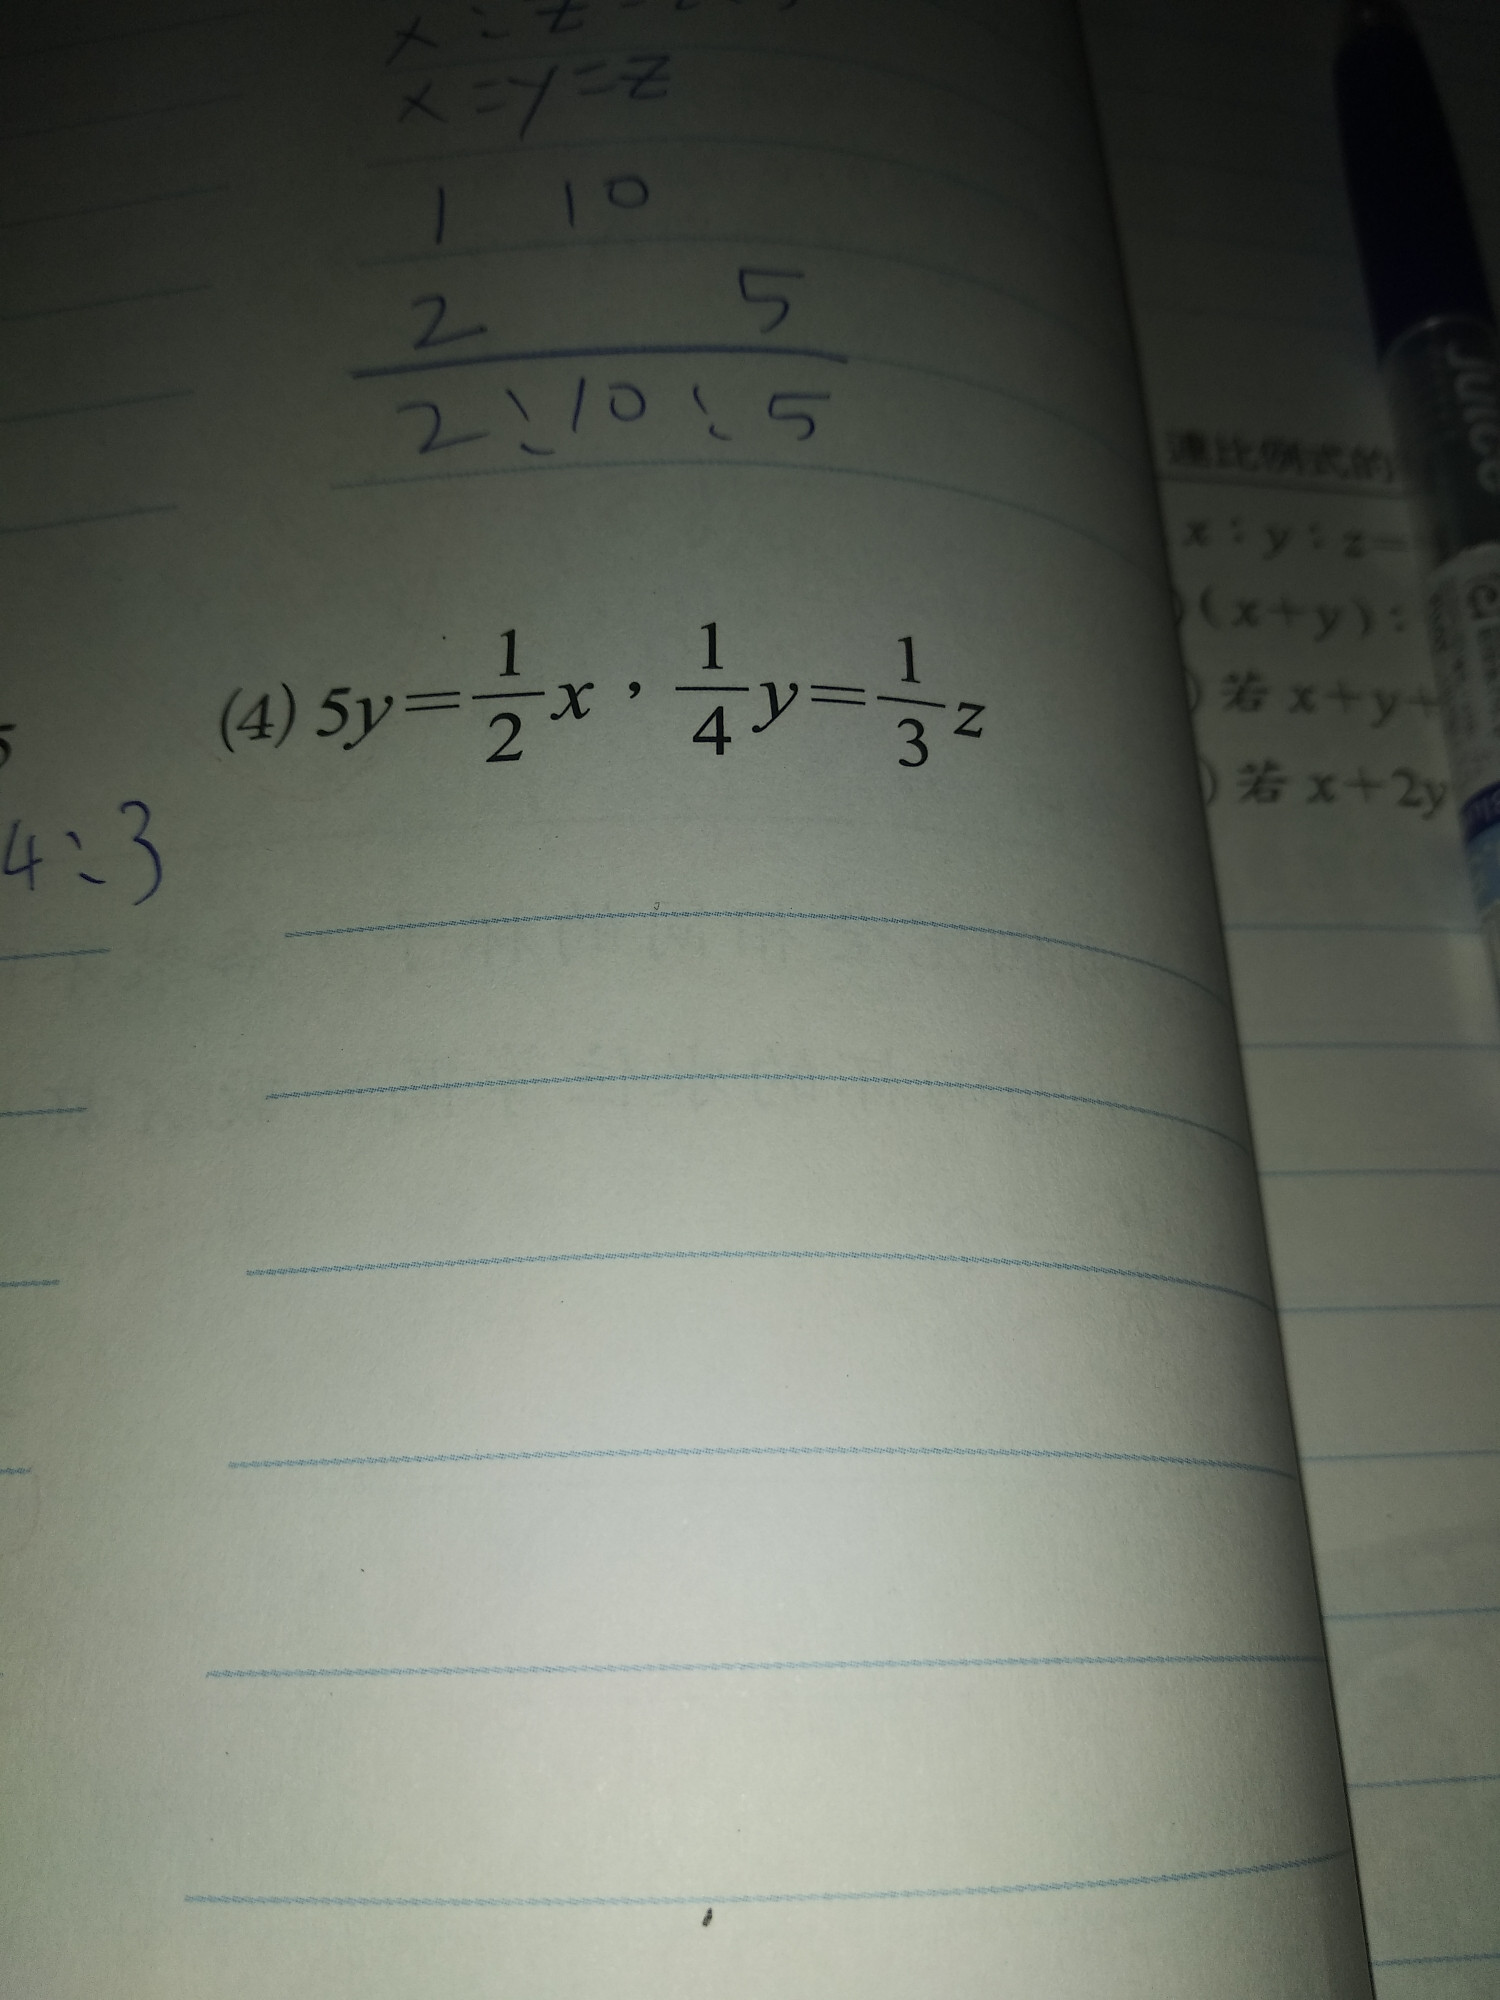 x=y=z
1 10
2 5
2:10:5
(4) 5y=\frac{1}{2}x，\frac{1}{4}y=\frac{1}{3}z
4:3
連比例式的
x：y：z=
(x+y)：
若 x+y+
若 x+2y
juice